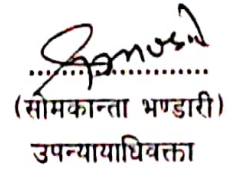 (सोमकान्ता भण्डारी)
उपन्यायाधिवक्ता